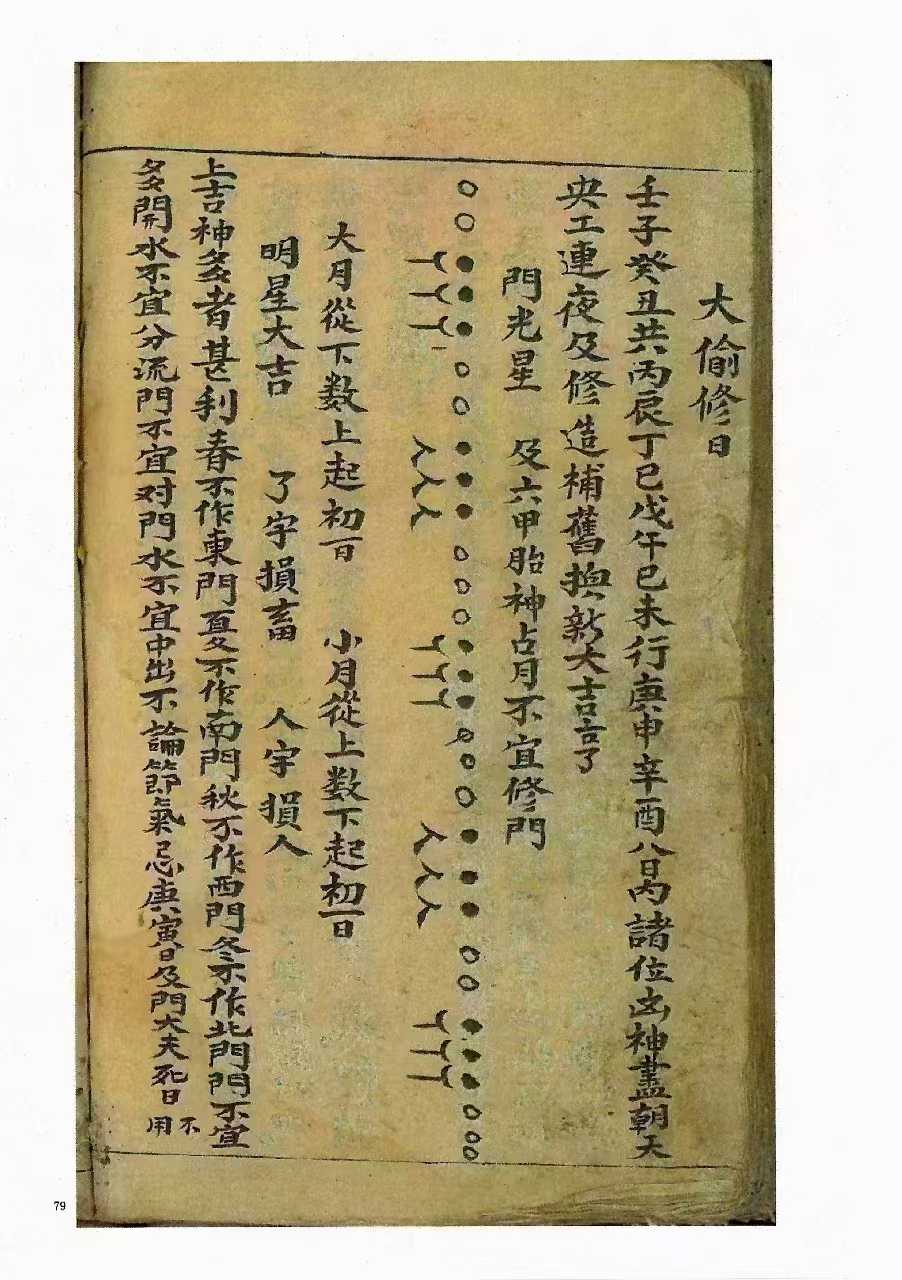 大偷修日
壬子癸丑共丙辰丁巳戊午己未行庚申辛酉八日內諸位凶神盡朝天
央工連夜及修造補舊換新大吉吉了
門光星 及六甲胎神占月不宜修門
○○●●●○○●●●○○○●●●○○○●●●○○●●●○○○
丫丫丫 人人人 丫丫丫 人人人 丫丫丫
大月從下数上起初一日 小月從上数下起初一日
明星大吉 了字損畜 人字損人
上吉神多者甚利春不作東門夏不作南門秋不作西門冬不作北門門不宜
多開水不宜分流門不宜对門水不宜中出不論節氣忌庚寅日及門大夫死日不用
79